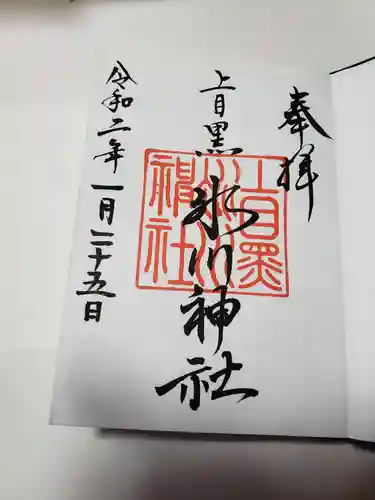 奉拝
上目黒
氷川神社
令和二年一月二十五日
上目黒
氷川
神社